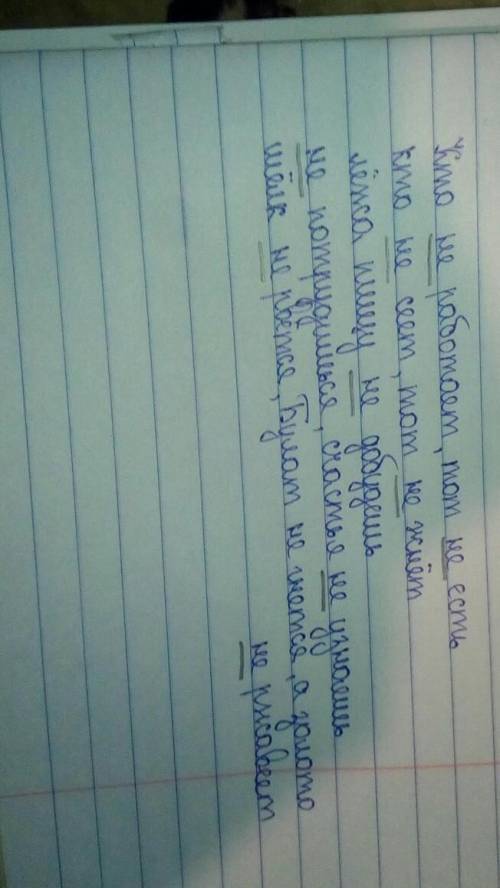 Кто не работает, тот не есть
кто не сеет, тот не жнёт
лёжа пищу не добудешь
не потрудишься, счастье не узнаешь
шёлк не рвётся, Булат не гнётся, а золото
не ржавеет